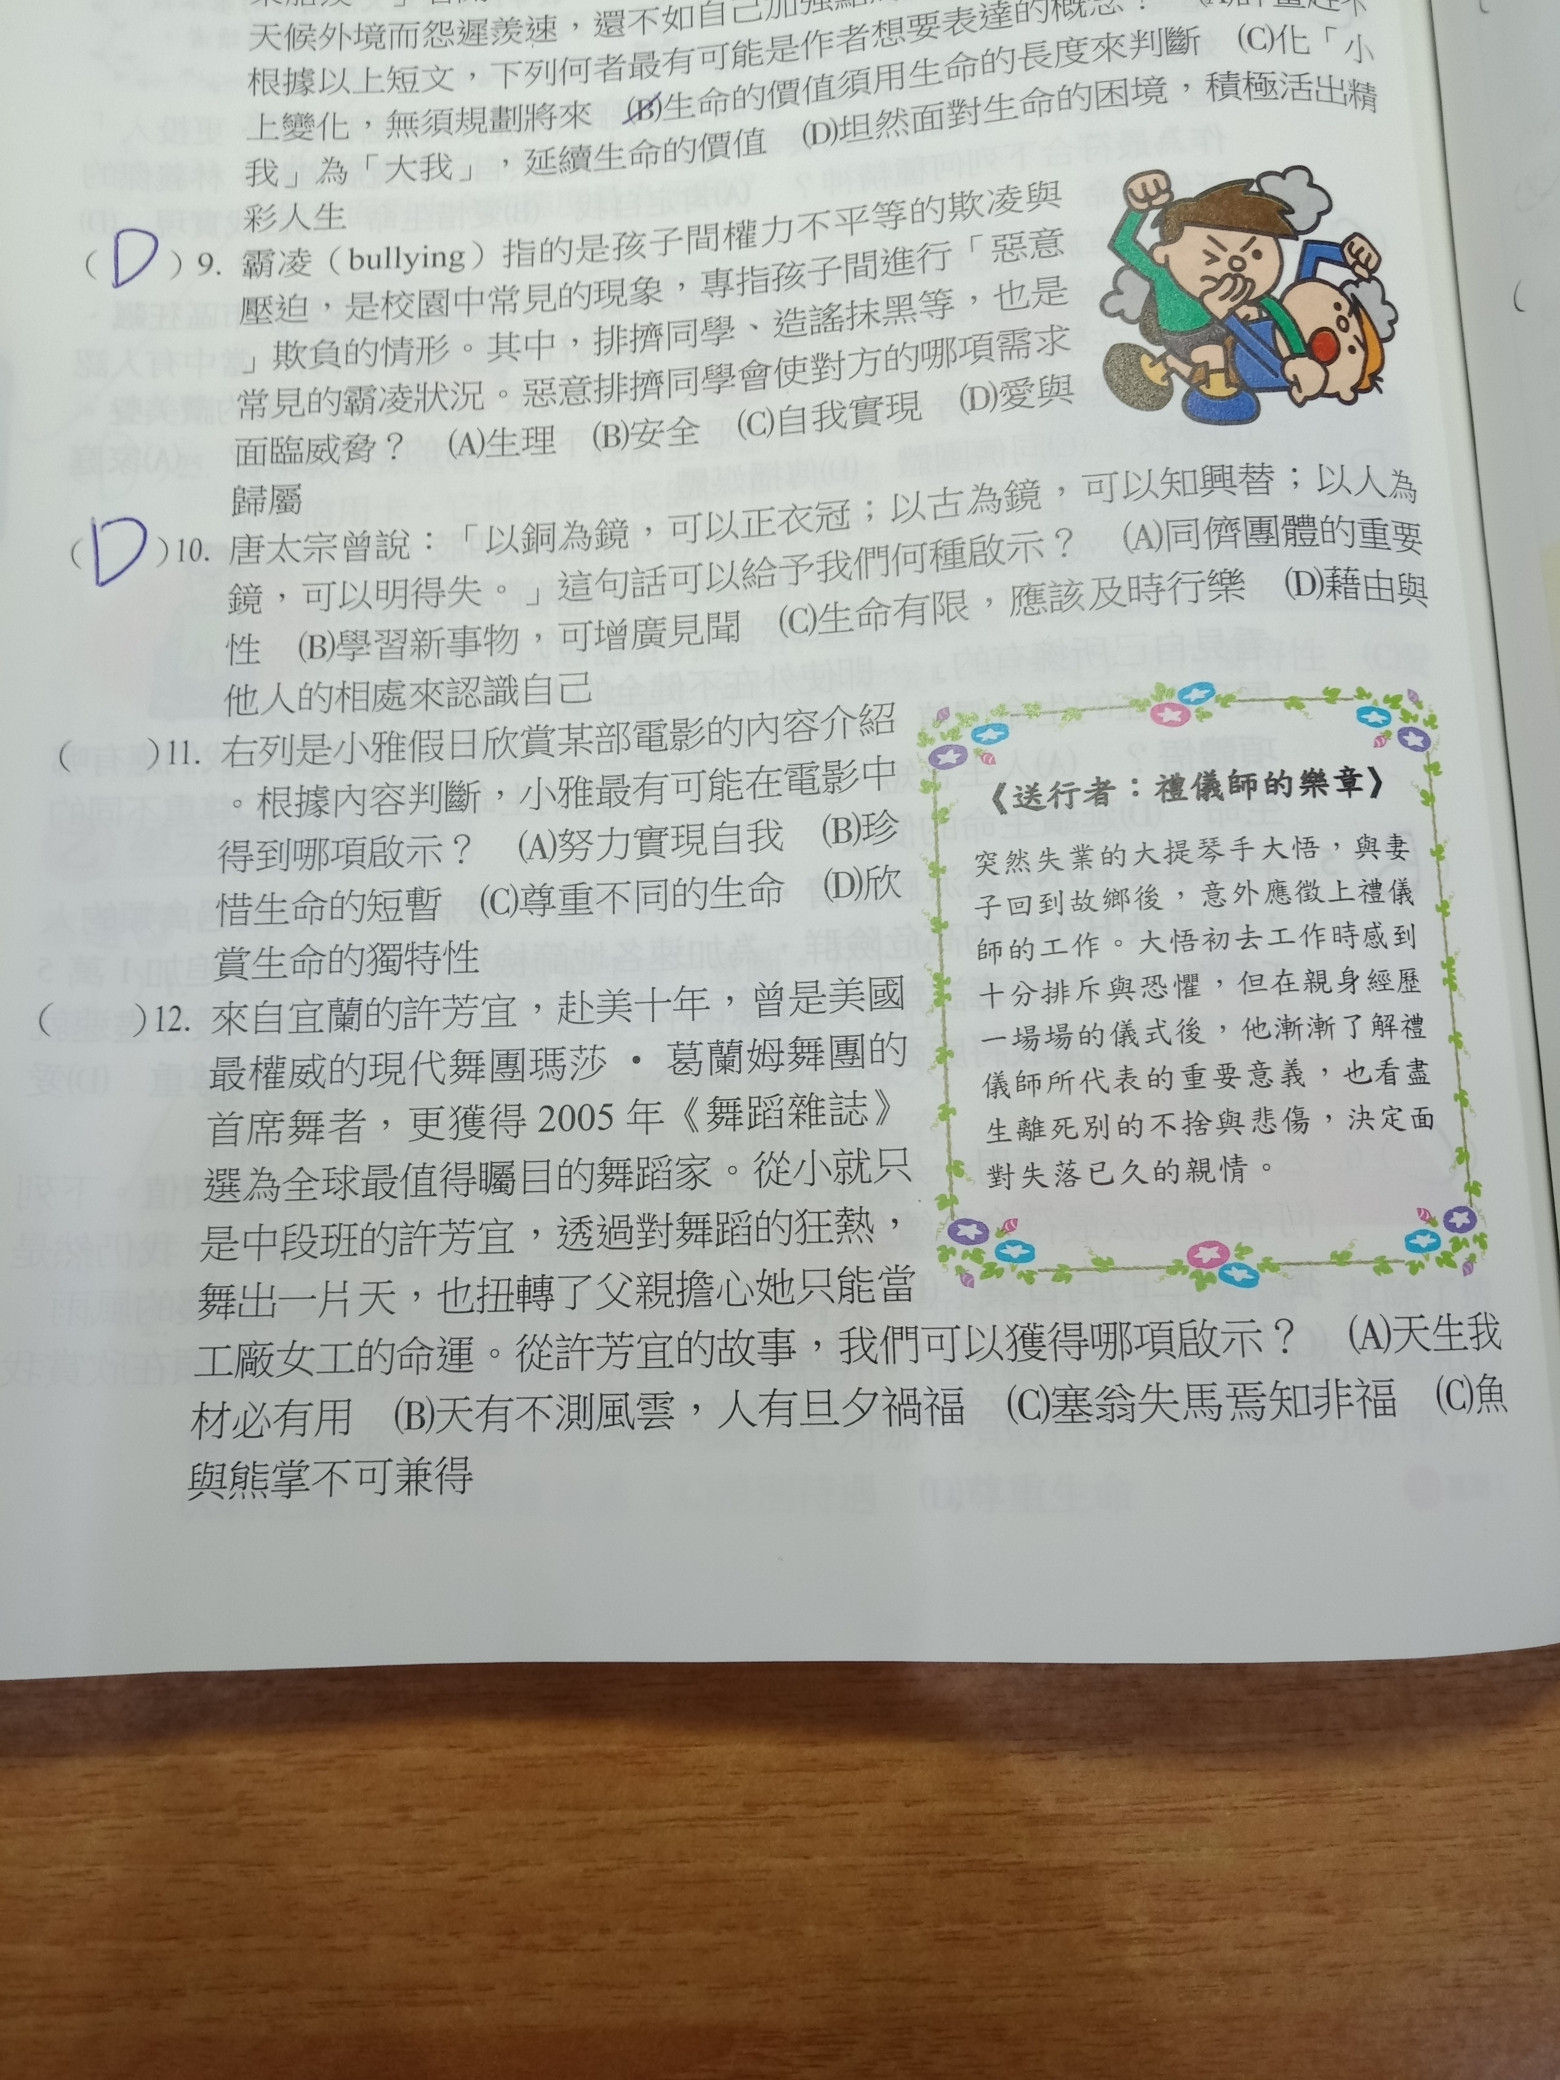 天候外境而怨遲羨速，還不如自己加強
根據以上短文，下列何者最有可能是作者想要表達的概念？
上變化，無須規劃將來　(B)生命的價值須用生命的長度來判斷　(C)化「小
我」為「大我」，延續生命的價值　(D)坦然面對生命的困境，積極活出精
彩人生
( D ) 9. 霸凌（bullying）指的是孩子間權力不平等的欺凌與
壓迫，是校園中常見的現象，專指孩子間進行「惡意
」欺負的情形。其中，排擠同學、造謠抹黑等，也是
常見的霸凌狀況。惡意排擠同學會使對方的哪項需求
面臨威脅？　(A)生理　(B)安全　(C)自我實現　(D)愛與
歸屬
( D )10. 唐太宗曾說：「以銅為鏡，可以正衣冠；以古為鏡，可以知興替；以人為
鏡，可以明得失。」這句話可以給予我們何種啟示？　(A)同儕團體的重要
性　(B)學習新事物，可增廣見聞　(C)生命有限，應該及時行樂　(D)藉由與
他人的相處來認識自己
(　　)11. 右列是小雅假日欣賞某部電影的內容介紹
。根據內容判斷，小雅最有可能在電影中
得到哪項啟示？　(A)努力實現自我　(B)珍
惜生命的短暫　(C)尊重不同的生命　(D)欣
賞生命的獨特性
《送行者：禮儀師的樂章》
突然失業的大提琴手大悟，與妻
子回到故鄉後，意外應徵上禮儀
師的工作。大悟初去工作時感到
十分排斥與恐懼，但在親身經歷
一場場的儀式後，他漸漸了解禮
儀師所代表的重要意義，也看盡
生離死別的不捨與悲傷，決定面
對失落已久的親情。
(　　)12. 來自宜蘭的許芳宜，赴美十年，曾是美國
最權威的現代舞團瑪莎・葛蘭姆舞團的
首席舞者，更獲得 2005 年《舞蹈雜誌》
選為全球最值得矚目的舞蹈家。從小就只
是中段班的許芳宜，透過對舞蹈的狂熱，
舞出一片天，也扭轉了父親擔心她只能當
工廠女工的命運。從許芳宜的故事，我們可以獲得哪項啟示？　(A)天生我
材必有用　(B)天有不測風雲，人有旦夕禍福　(C)塞翁失馬焉知非福　(C)魚
與熊掌不可兼得